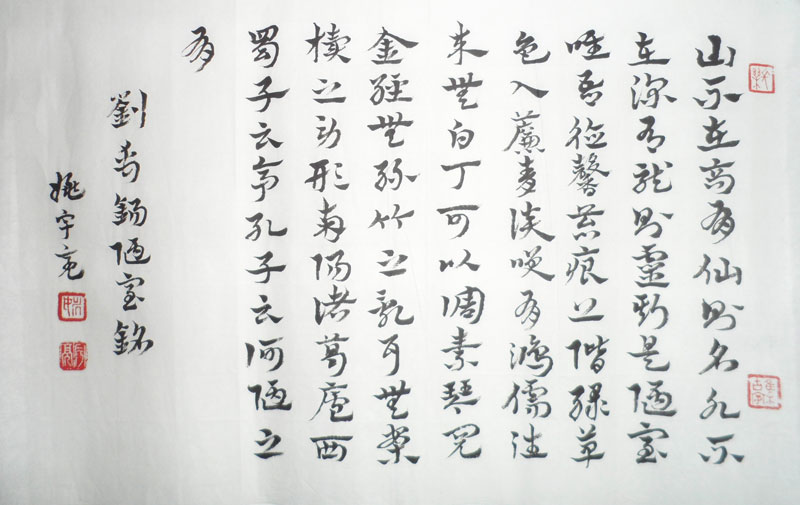 山不在高有仙则名水不
在深有龍则靈斯是陋室
唯吾德馨苔痕上階綠草
色入簾青談笑有鴻儒往
来無白丁可以調素琴閱
金經無絲竹之亂耳無案
牘之勞形南陽諸葛廬西
蜀子云亭孔子云何陋之
有
劉禹錫陋室銘
姚宇亮